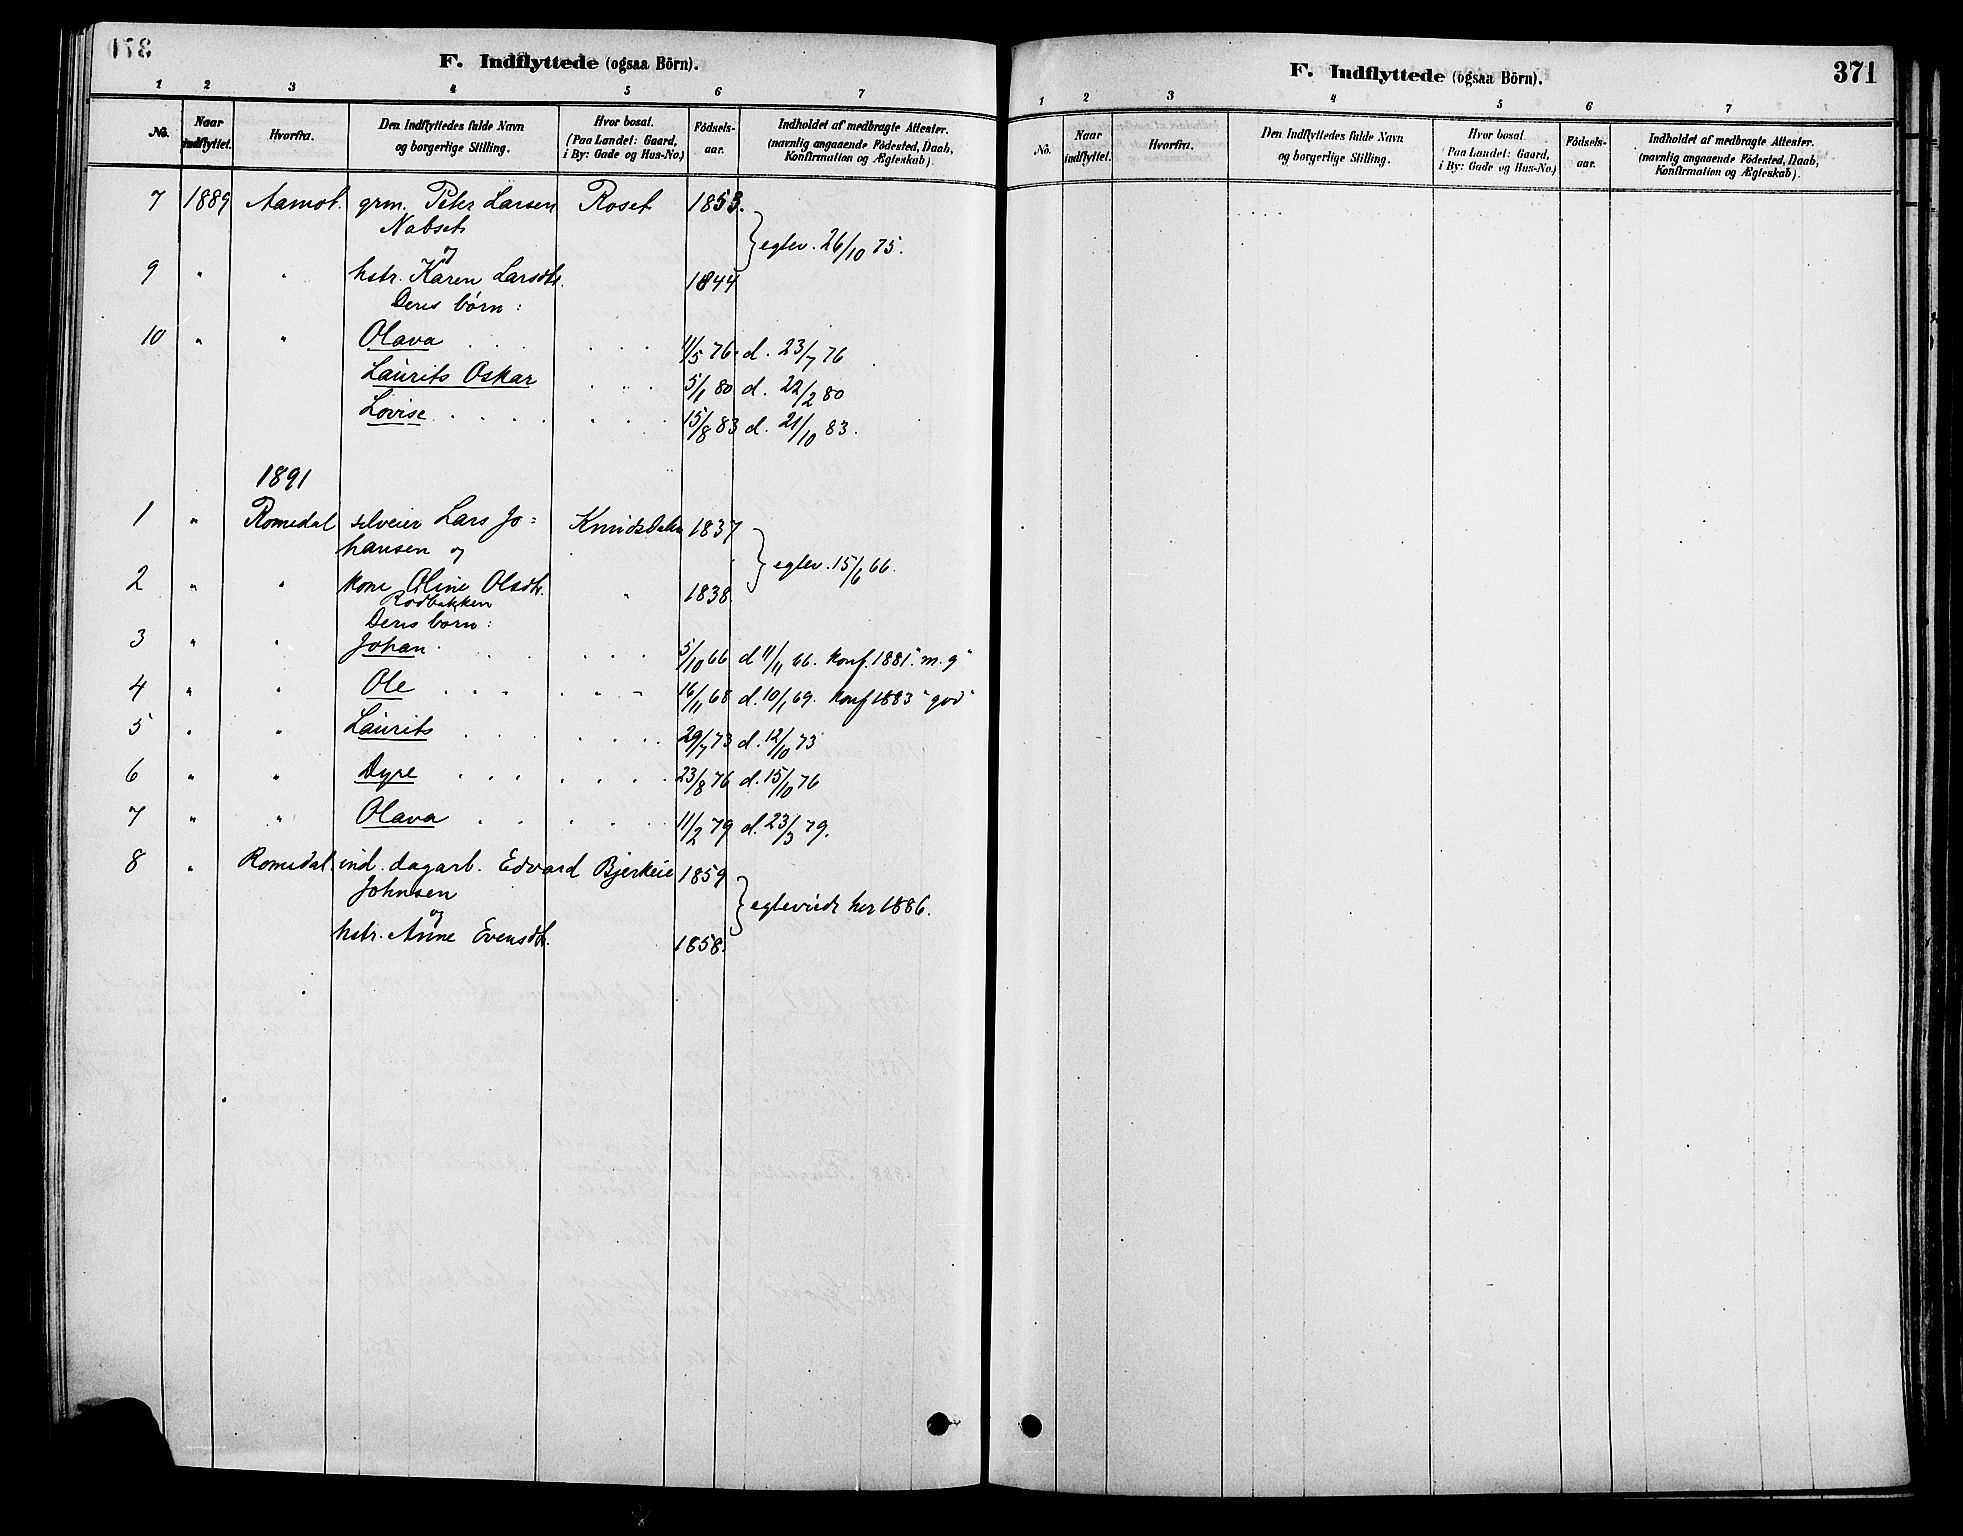 F. Indflyttede (ogsaa Börn).
1 2 3 4 5 6 7
No. Naar indflyttet. Hvorfra. Den Indflyttedes fulde Navn og borgerlige Stilling. Hvor bosat. (Paa Landet: Gaard, i By: Gade og Hus-No.) Födsels-aar. Indholdet af medbragte Attester. (navnlig angaaende Födested, Daab, Konfirmation og Ægteskab).
7 1889 Aamot. grm. Peter Larsen Roset 1853.
Nabset
og } egtev. 26/10 75.
9 " " hstr. Karen Larsdtr. 1844
Deres børn:
10 " " Olava . . . . . . 11/5 76. d. 23/7 76
Laurits Oskar . . . 5/1 80 d. 22/2 80
Lovise . . . . . . . 15/8 83 d. 21/10 83.
1891
1 " Romedal selveier Lars Jo= Knudsdalen 1837
hansen og } egtev. 15/6 66.
2 " " kone Oline Olsdtr. " 1838.
Rodbakken
Deres børn:
3 " " Johan . . . . . . 5/10 66 d 11/11 66. konf. 1881. "m. g"
4 " " Ole . . . . . . 16/11 68 d. 10/1 69. konf 1883 "god"
5 " " Laurits . . . . . . 29/7 73 d. 12/10 73
6 " " Dyre . . . . . . . 23/8 76 d. 15/10 76
7 " " Olava . . . . . . 11/2 79 d. 23/3 79.
8 " Romedal. ind. dagarb. Edvard Bjerkeie 1859
Johnsen
og } egteviede her 1886.
hstr. Anne Evensdtr. 1858.
F. Indflyttede (ogsaa Börn). 371
1 2 3 4 5 6 7
No. Naar indflyttet. Hvorfra. Den Indflyttedes fulde Navn og borgerlige Stilling. Hvor bosat. (Paa Landet: Gaard, i By: Gade og Hus-No.) Födsels-aar. Indholdet af medbragte Attester. (navnlig angaaende Födested, Daab, Konfirmation og Ægteskab).